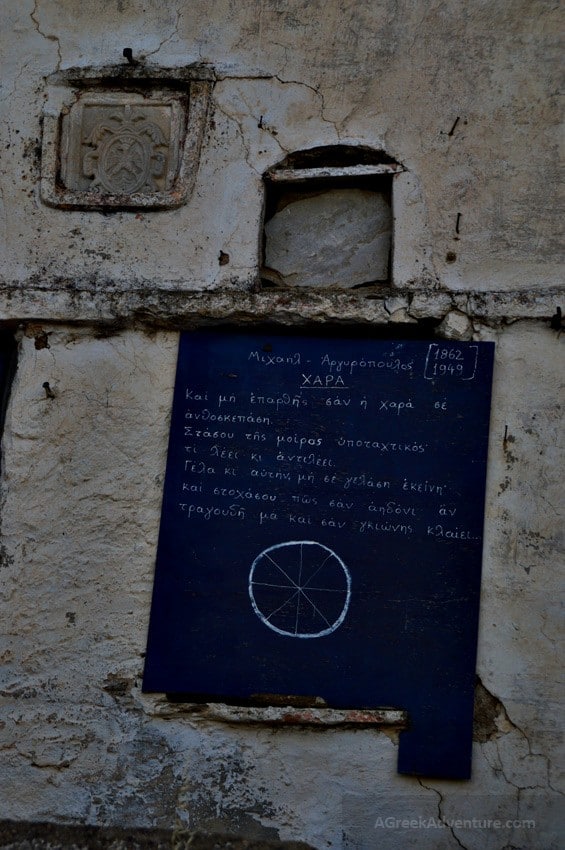 Μιχαηλ - Αργυρόπουλος [1862
1949]
ΧΑΡΑ
Καὶ μὴ ἐπαρθῆς σὰν ἡ χαρὰ σὲ
ἀνθοσκεπάση.
Στάσου τῆς μοίρας ὑποταχτικὸς
τί λέει κι ἀντιλέει.
Γέλα κι αὐτήν, μὴ σὲ γελάση ἐκείνη
καὶ στοχάσου πῶς σὰν ἀηδόνι ἂν
τραγουδῆ μὰ καὶ σὰν γκιώνης κλαίει...
AGreekAdventure.com